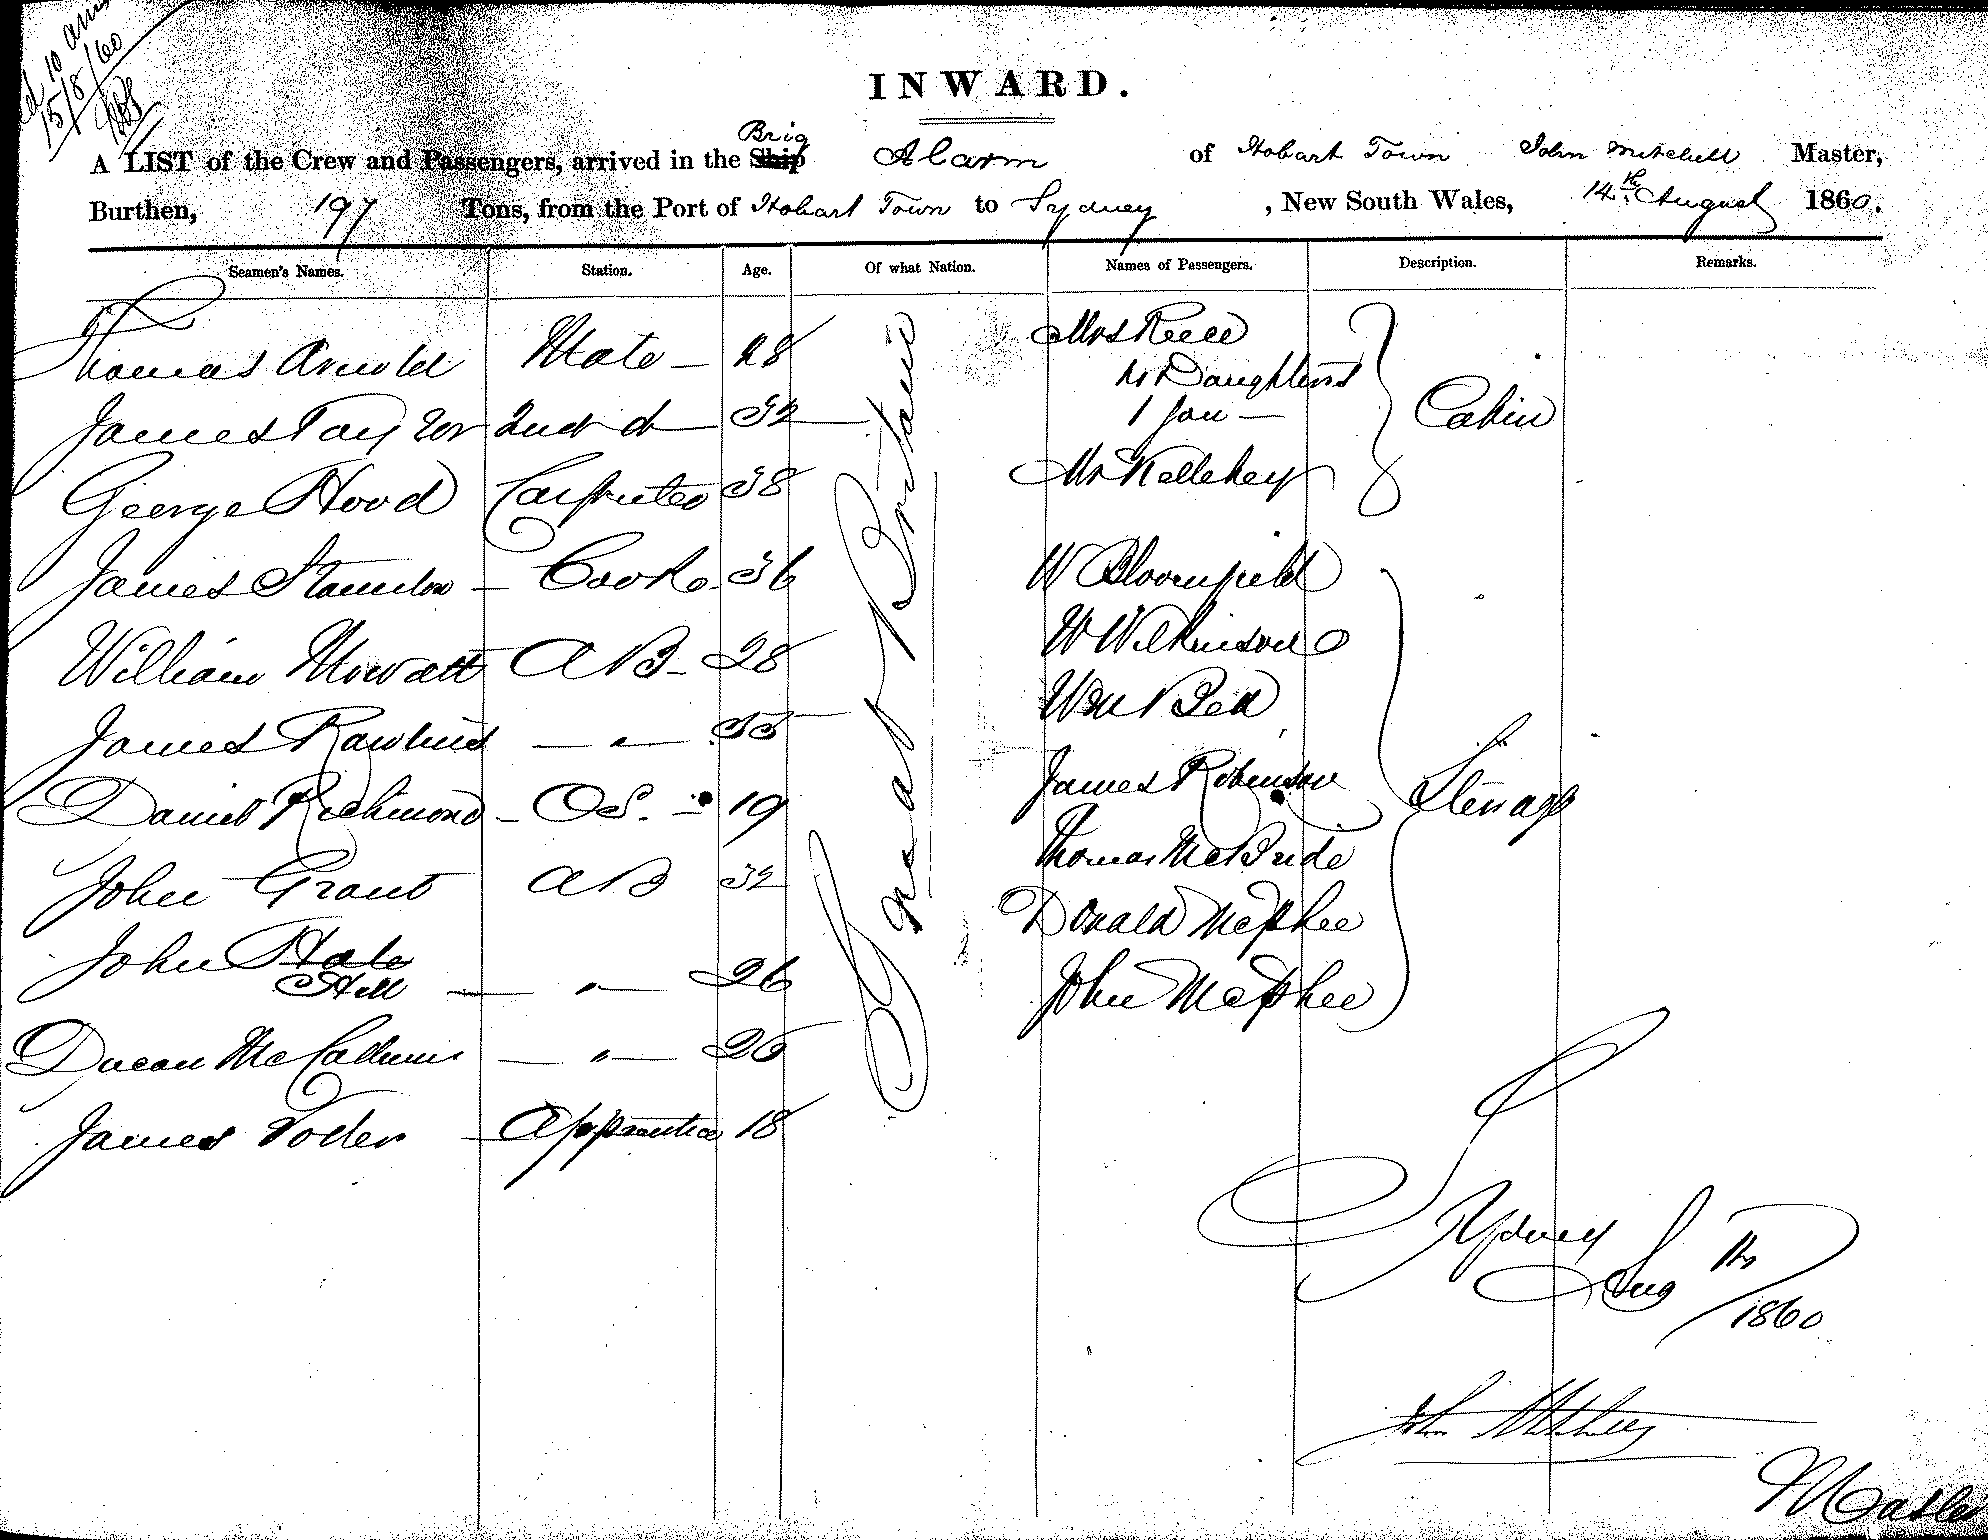 10
15/8/60
INWARD.
Brig
A LIST of the Crew and Passengers, arrived in the Ship Alarm of Hobart Town John Mitchell Master,
Burthen, 197 Tons, from the Port of Hobart Town to Sydney, New South Wales, 14th August 1860.
Seamen's Names. Station. Age. Of what Nation. Names of Passengers. Description. Remarks.
Great Britain
Thomas Arnold Mate 28 Mrs Reece
Daughters
James Taylor 2nd do 32 1 Son Cabin
George Hood Carpenter 38 Mr Kellehey
James Cook 36 W Bloomfield
William Mowatt AB 28 W Wilkinson
James Rawlins " Wm Bell
Daniel Richmond OS. 19 James Robinson Steerage
Thomas McBride
John Grant AB 32 Donald McPhee
John Hale
Hill " 26 John McPhee
Ducan McCallum " 26
James Apprentice 18
Sydney
Aug
1860
John Mitchell
Master